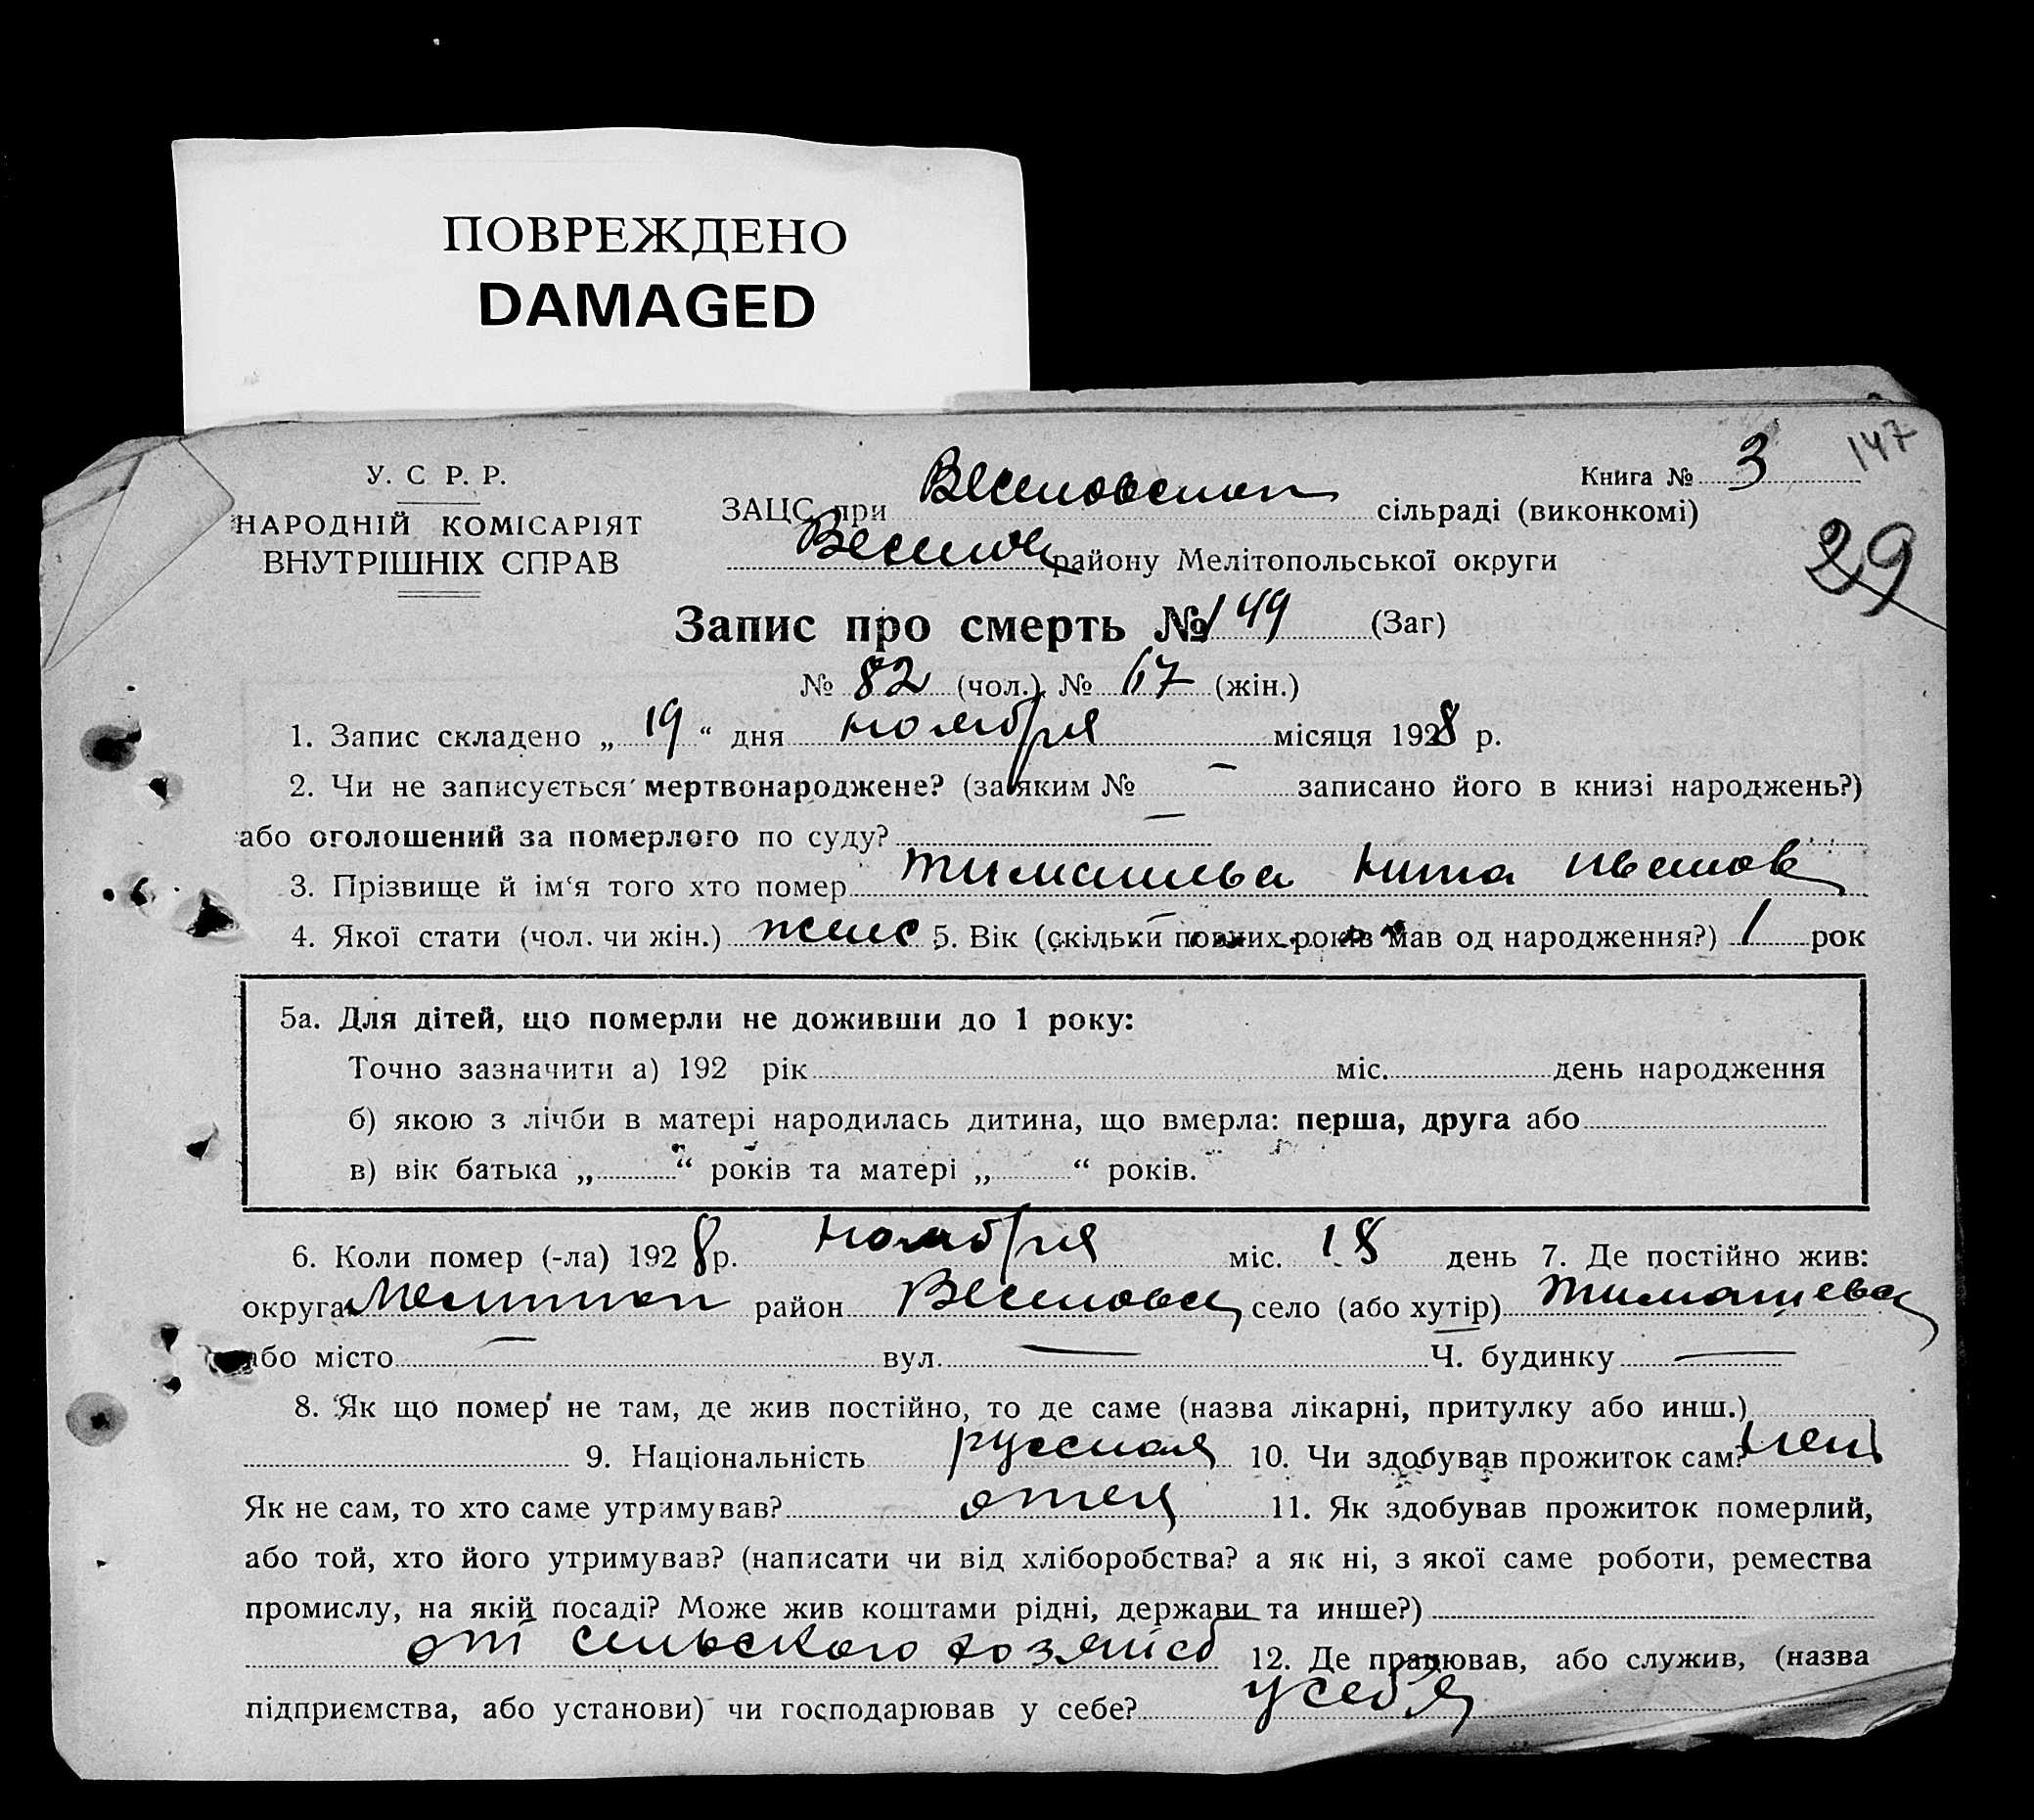 ПОВРЕЖДЕНО
DAMAGED
147
У. С Р. Р.
НАРОДНІЙ КОМІСАРІЯТ
ВНУТРІШНІХ СПРАВ
Книга № 3
ЗАЦС при сільраді (виконкомі)
29
району Мелітопольської округи
Запис про смерть № 149 (Заг)
№ 82 (чол.) № 67 (жін.)
1. Запис складено „ 19 “ дня ноября місяця 1928 р.
2. Чи не записується мертвонароджене? (за яким № — записано його в книзі народжень?)
або оголошений за померлого по суду? —
3. Прізвище й ім‘я того хто помер Тимашева Нина Иванов
4. Якої стати (чол. чи жін.) женс 5. Вік (скільки повних років мав од народження?) 1 рок
5а. Для дітей, що померли не доживши до 1 року:
Точно зазначити а) 192 рік міс. день народження
б) якою з лічби в матері народилась дитина, що вмерла: перша, друга або
в) вік батька „ “ років та матері „ “ років.
6. Коли помер (-ла) 1928 р. ноября міс. 18 день 7. Де постійно жив:
округа Мелитоп район село (або хутір) Тимашевка
або місто — вул. — Ч. будинку —
8. Як що помер не там, де жив постійно, то де саме (назва лікарні, притулку або инш.)
9. Національність русская 10. Чи здобував прожиток сам? нет
Як не сам, то хто саме утримував? отец 11. Як здобував прожиток померлий,
або той, хто його утримував? (написати чи від хліборобства? а як ні, з якої саме роботи, ремества
промислу, на якій посаді? Може жив коштами рідні, держави та инше?)
от сельского хозяйсв 12. Де працював, або служив, (назва
підприємства, або установи) чи господарював у себе? у себя